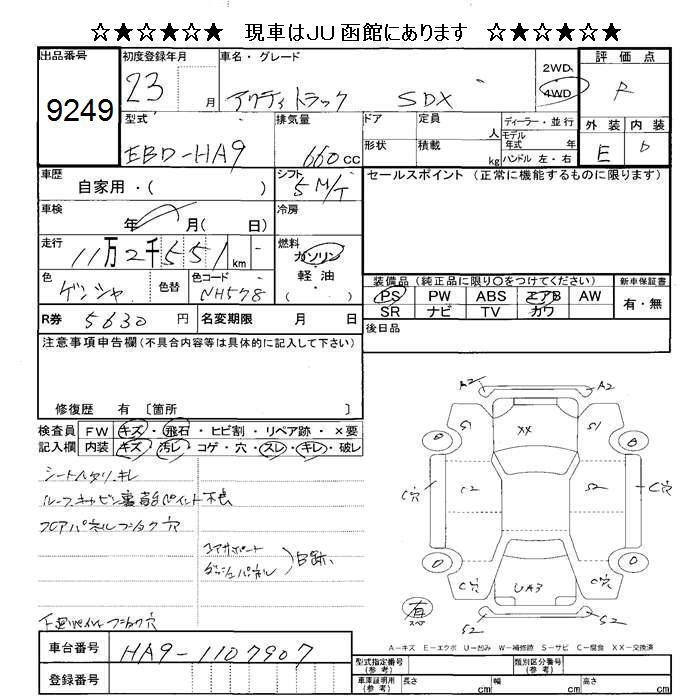 ☆★☆★☆ 現車はJU函館にあります ☆★☆★☆
出品番号
9249
初度登録年月
23 月
車名・グレード
アクティトラック SDX
2WD
4WD
評価点
R
外装 内装
E D
型式
EBD-HA9
排気量
660 cc
ドア
定員
人
形状
積載
kg
ディーラー・並行
モデル年式 年
ハンドル 左・右
車歴
自家用・( )
シフト
5 M/T
セールスポイント (正常に機能するものに限ります)
車検
年 月( 日)
冷房
走行
11万2千551 km
燃料
ガソリン
軽油
( )
色
ゲンシャ
色替
色コード
NH578
装備品 (純正品に限り○をつけてください)
PS PW ABS エアB AW
SR ナビ TV カワ
新車保証書
有・無
R券 5630 円
名変期限 月 日
後日品
注意事項申告欄(不具合内容等は具体的に記入して下さい)
修復歴 有 〔箇所 〕
検査員記入欄
FW キズ・飛石・ヒビ割・リペア跡・×要
内装 キズ・汚レ・コゲ・穴・スレ・キレ・破レ
シートヘタリ、キレ
フロアパネルフショク穴
コアサポート
ダッシュパネル
)B跡
A2 A2
S1 S1
XX
C2 S2
C穴 C穴
C穴 C穴
UA3
S2 S2
有
スペア
A-キズ E-エクボ U-凹み W-補修跡 S-サビ C-腐食 XX-交換済
車台番号
HA9-1107907
登録番号
型式指定番号(参考)
類別区分番号(参考)
車庫証明用(参考)
長さ cm
幅 cm
高さ cm